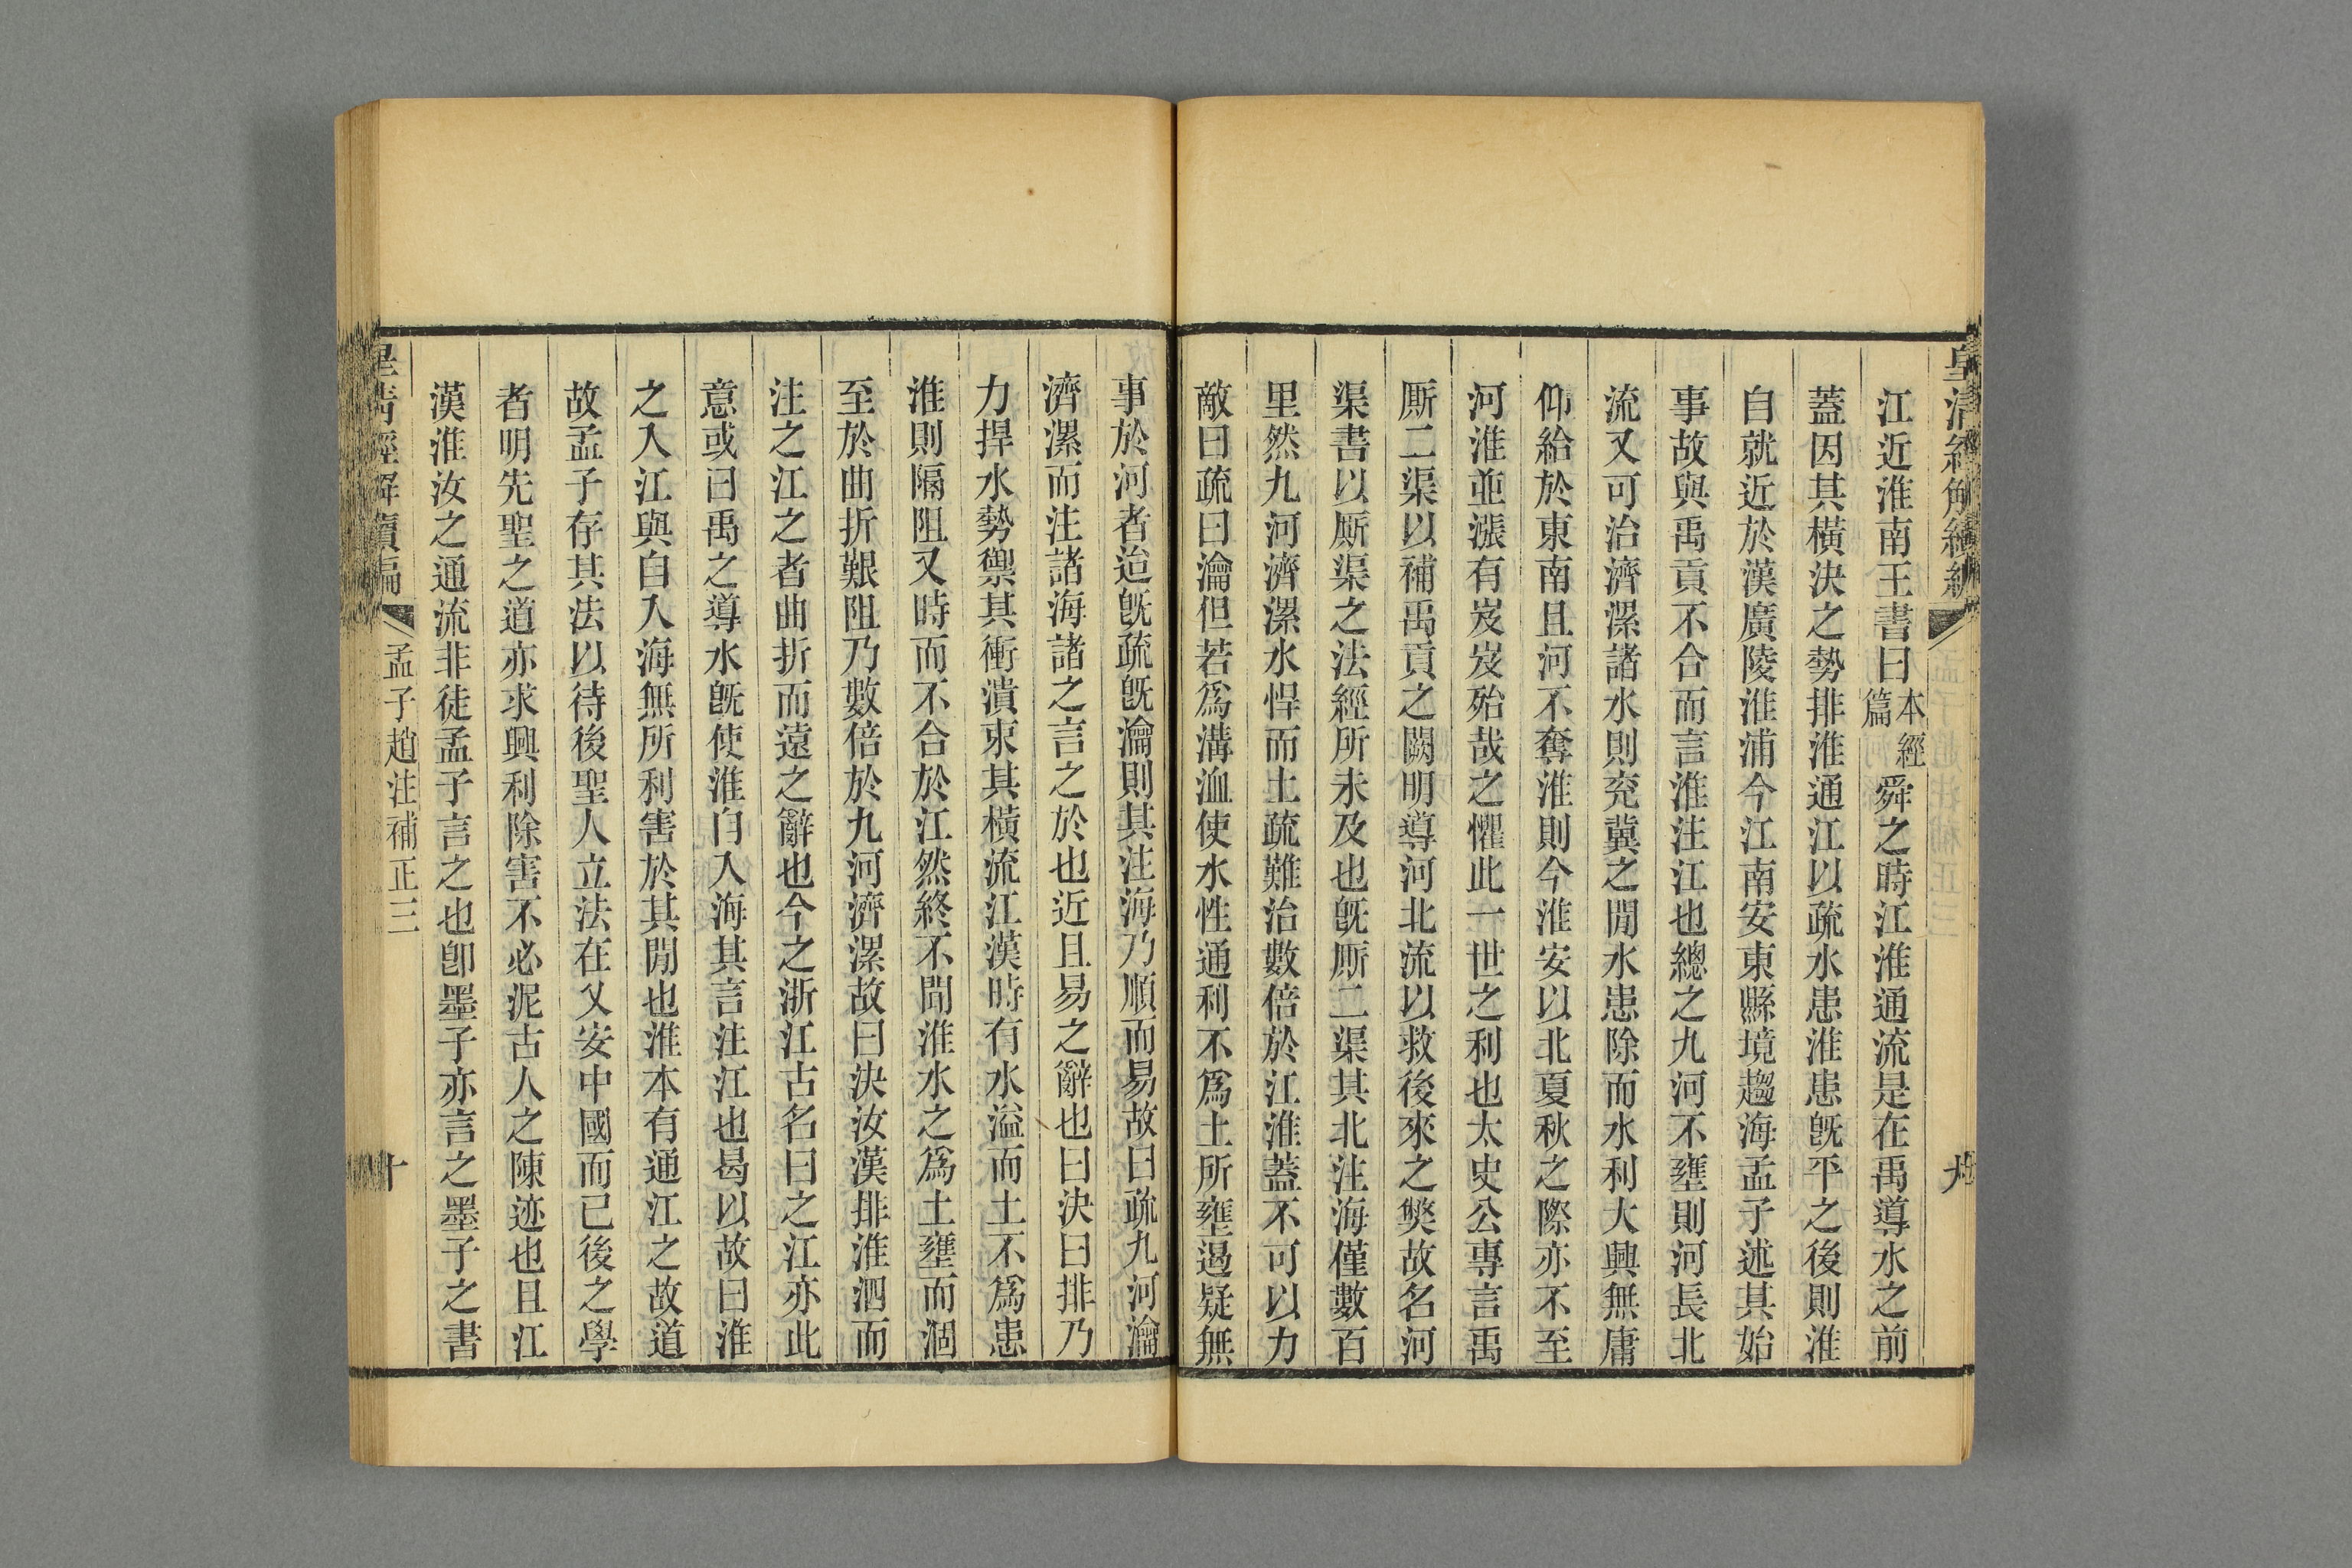 皇清經解續編
九
江近淮南王書曰本經篇舜之時江淮通流是在禹導水之前
蓋因其橫決之勢排淮通江以疏水患淮患旣平之後則淮
自就近於漢廣陵淮浦今江南安東縣境趨海孟子述其始
事故與禹貢不合而言淮注江也總之九河不壅則河長北
流又可治濟漯諸水則兖冀之閒水患除而水利大興無庸
仰給於東南且河不奪淮則今淮安以北夏秋之際亦不至
河淮並漲有岌岌殆哉之懼此一世之利也太史公專言禹
厮二渠以補禹貢之闕明導河北流以救後來之獘故名河
渠書以厮渠之法經所未及也旣厮二渠其北注海僅數百
里然九河濟漯水悍而土疏難治數倍於江淮蓋不可以力
敵曰疏曰瀹但若爲溝洫使水性通利不爲土所壅遏疑無
事於河者迨旣疏旣瀹則其注海乃順而易故曰疏九河瀹
濟漯而注諸海諸之言之於也近且易之辭也曰決曰排乃
力捍水勢禦其衝潰束其橫流江漢時有水溢而土不爲患
淮則隔阻又時而不合於江然終不聞淮水之爲土壅而涸
至於曲折艱阻乃數倍於九河濟漯故曰決汝漢排淮泗而
注之江之者曲折而遠之辭也今之浙江古名曰之江亦此
意或曰禹之導水旣使淮自入海其言注江也曷以故曰淮
之入江與自入海無所利害於其閒也淮本有通江之故道
故孟子存其法以待後聖人立法在乂安中國而已後之學
者明先聖之道亦求興利除害不必泥古人之陳迹也且江
漢淮汝之通流非徒孟子言之也卽墨子亦言之墨子之書
皇清經解續編
孟子趙注補正三
十